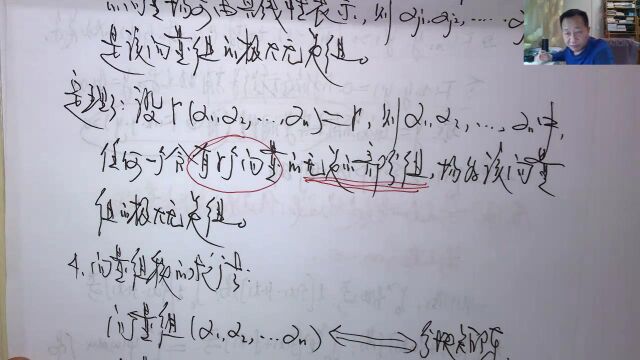 向量均可由其线性表示, 则 αj₁, αj₂, ……αj
是该向量组的极大无关组。
定理3: 设 r(α₁, α₂, …, αₙ)=r, 则 α₁, α₂, …, αₙ中,
任何一个含有r个向量的无关的部分组, 均为该向量
组的极大无关组。
4. 向量组秩的求法:
向量组(α₁, α₂, …αₙ) ⟷